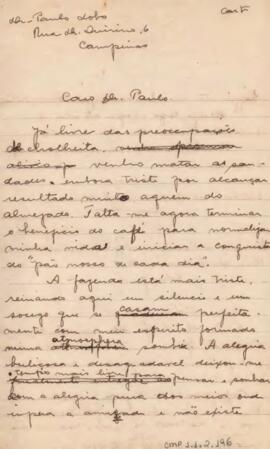 Dr. Paulo Lobo
Cart
Rua Dr. Quirino, 6
Campinas
Caro Dr. Paulo.
Já livre das preocupações
de colheita,
venho matar as sau-
dades, embora triste por alcançar
resultado muito aquem do
almejado. Falta-me agora terminar
o beneficio do café para normalizar
minha vida e iniciar a conquista
do "pão nosso de cada dia".
A fazenda está mais triste,
reinando aqui um silencio e um
socego que se casam perfeita-
mente com meu espirito formado
numa atmosphera sombria. A alegria
buliçosa e desagradavel deixou-me
tempo mais livre para
pensar e sonhar
com a alegria pura dos meios onde
impera a amizade e não existe
CMP 1.1.2.196